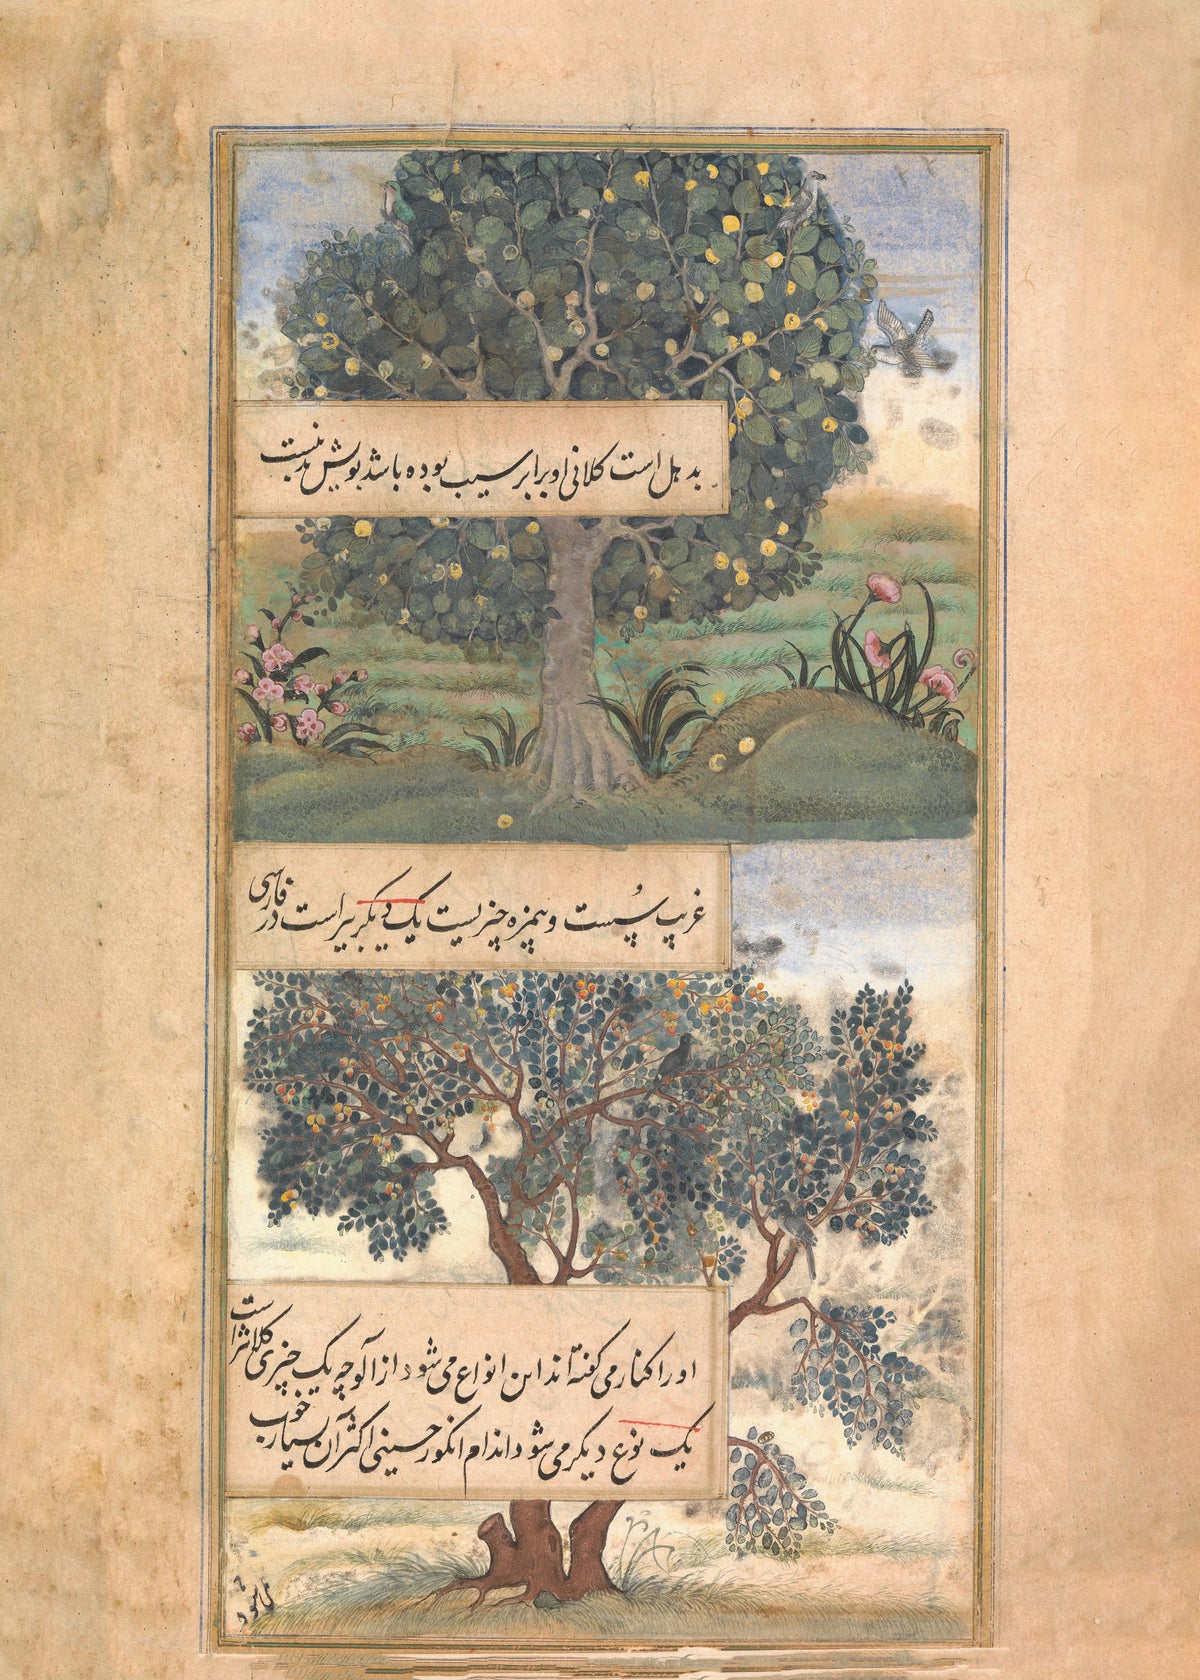 بدهل است کلانی او برابر سیب بوده باشد بویش بد نیست
غریب سُپست و بیمزه چیزیست یک دیگر بیر است در فارسی
او را کنار می گفته اند این انواع می شود از آلوچه یک چیزی کلانتر است
یک نوع دیگر می شود اندام انگور حسینی اکثر آن بسیار خوب